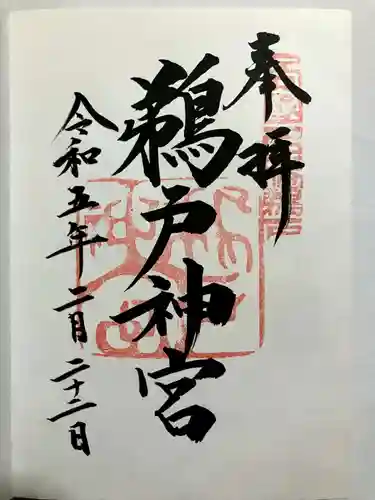 奉拝
鵜戸神宮
令和五年二月二十二日